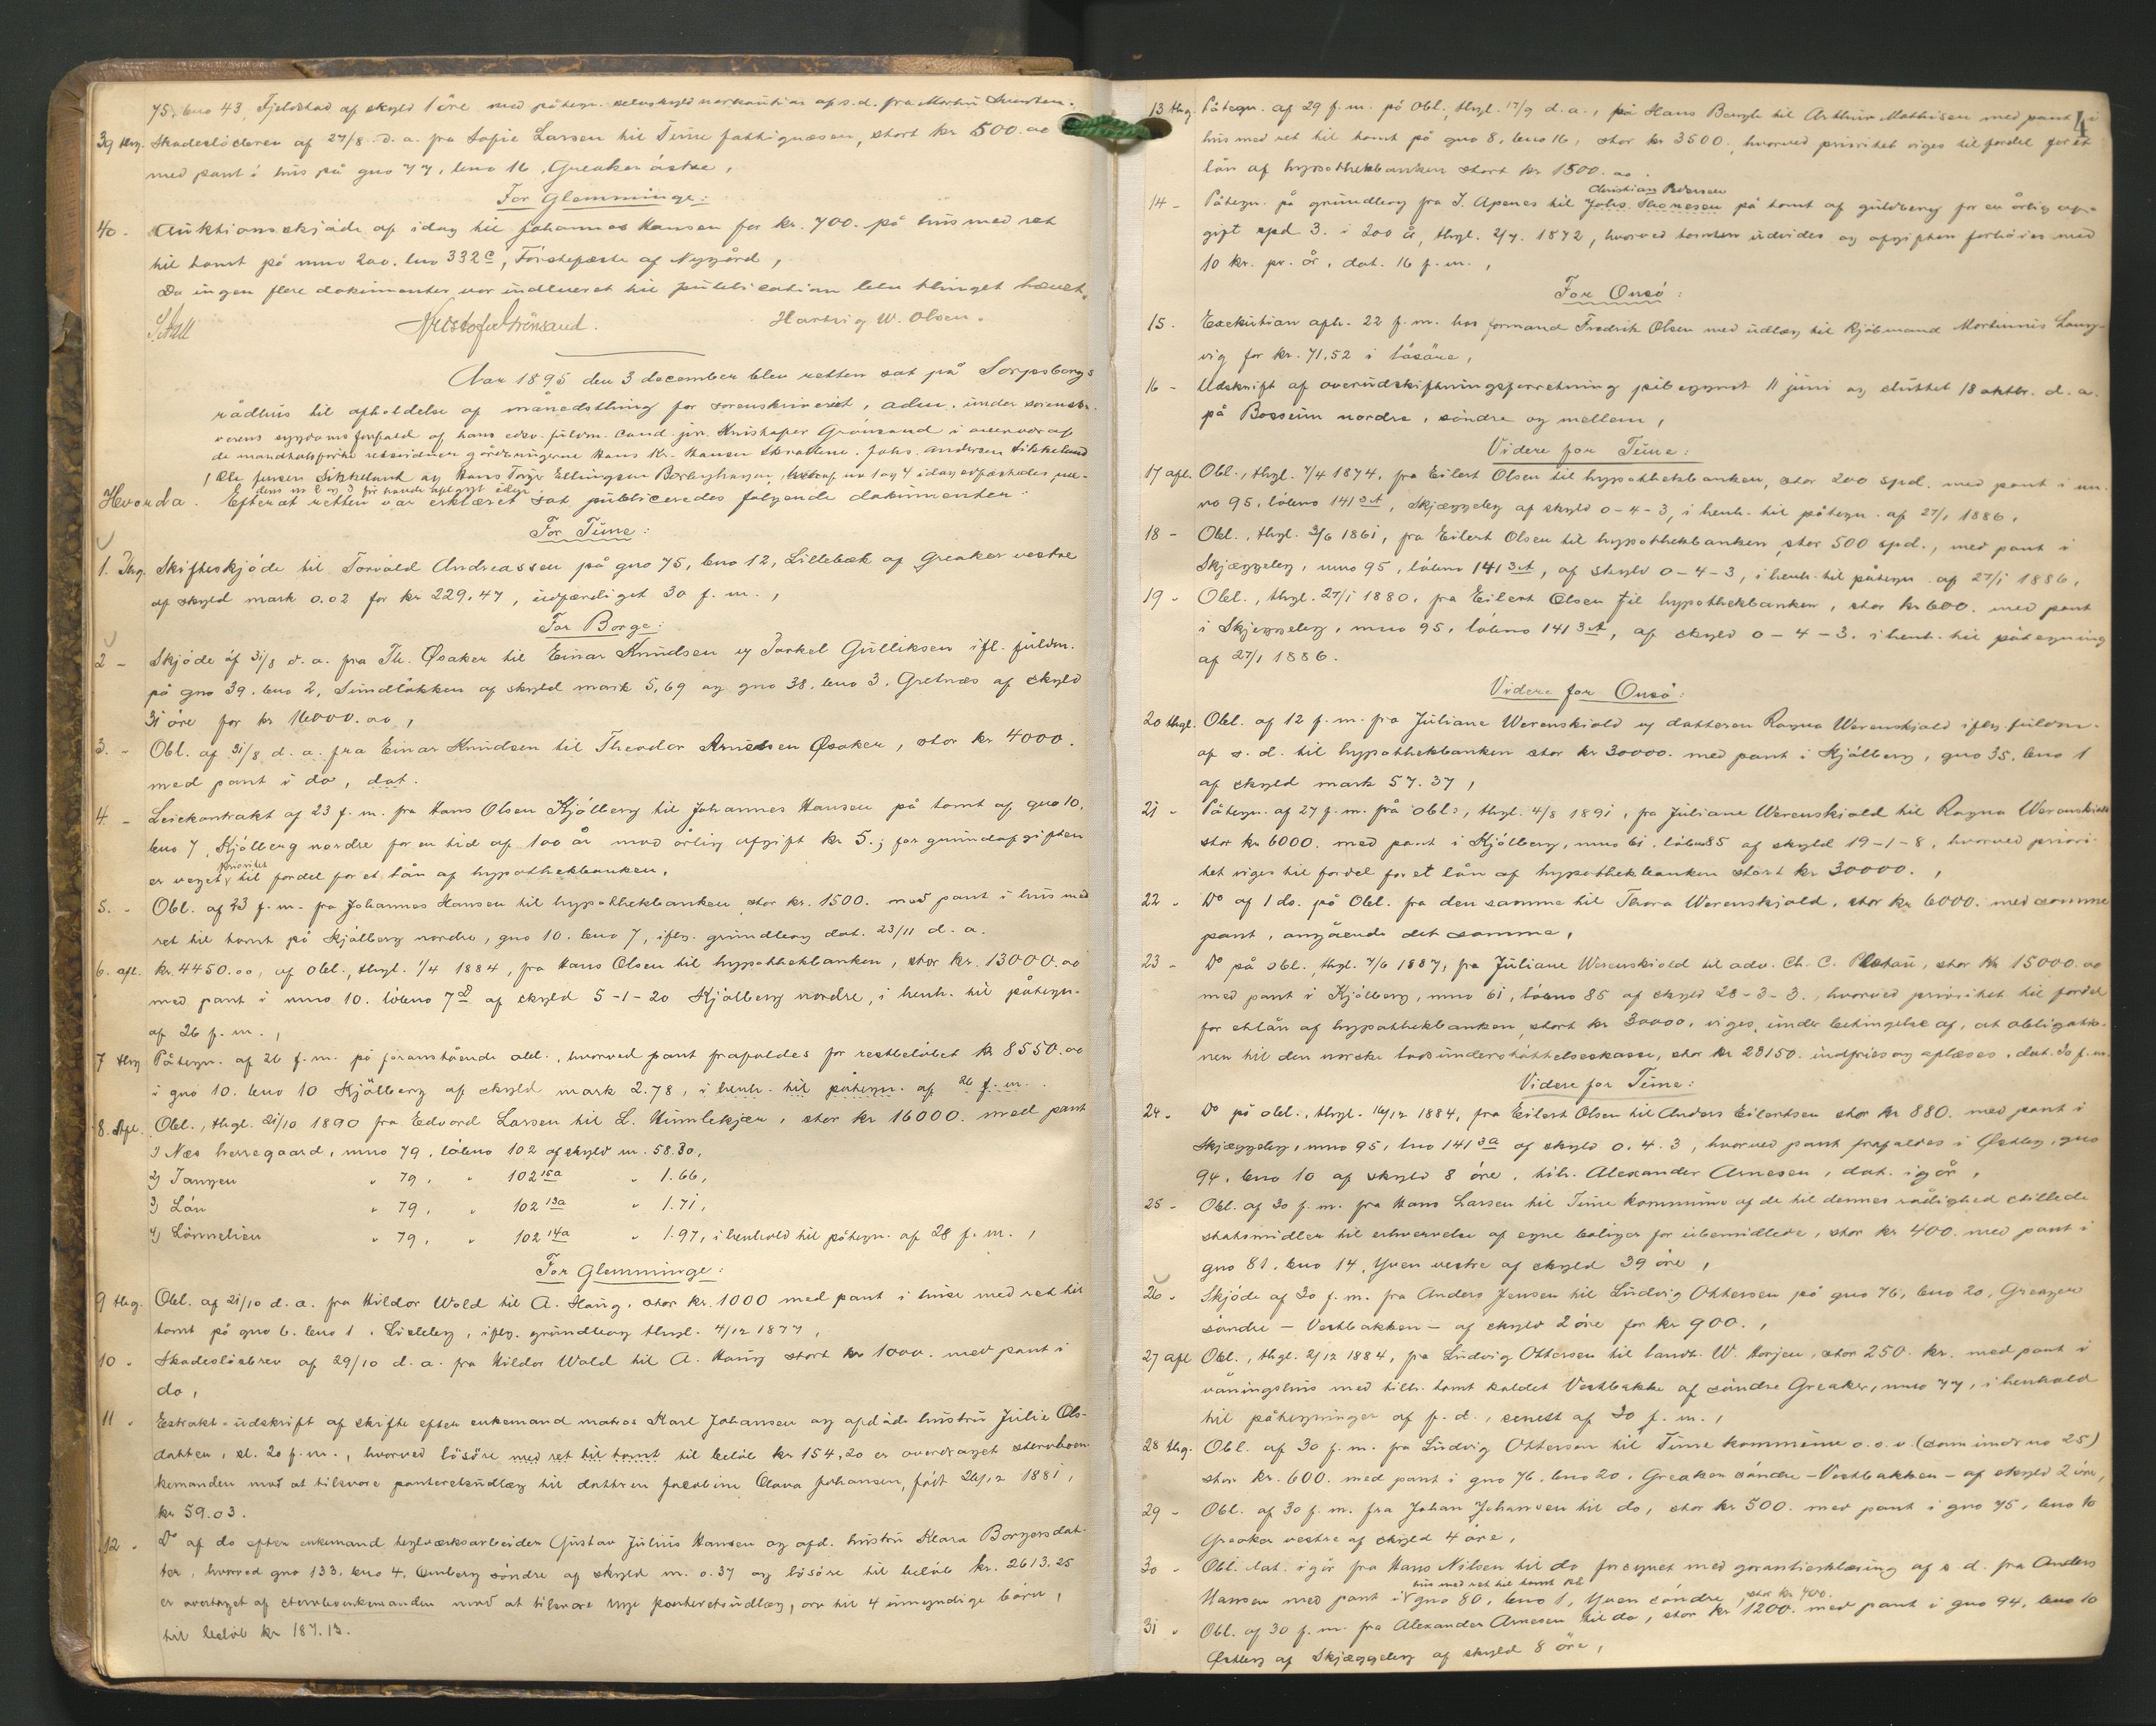 75, bno 43, Fjeldstad af skyld 1 öre med påtegn. selvskyldnerkaution af s.d. fra Martin
39 thg. Skadeslösbrev af 27/8 d. a. fra Sofie Larsen til Tune fattigvæsen, stort kr 500.00
med pant i hus på gno 77, bno 16, Greaker östre,
For Glemminge:
40. Auktionsskjöde af idag til Johannes Hansen for kr. 700. på hus med ret
til tomt på mno 200. lno 332 c, Förstepæste af Nygård,
Da ingen flere dokumenter var indleveret til publication blev thinget hævet.
Kristofer Grönsund. Hartvig W. Olsen.
Aar 1895 den 3 december blev retten sat på Sarpsborgs
rådhus til afholdelse af månedsthing for sorenskriveriet, adm. under sorenskri-
verens sygdomsforfald af hans edsv. fuldm. cand. jur. Kristofer Grönsund i overvær af
de mandtalsförte retsvidner gårdbrugerne Hans Kr. Hansen Skrattene, Johs. Andersen Sikkeland
, Ole Jensen Sikkeland og Hans Torger Ellingsen Borberghagen, hvoraf no 1 og 4 idag edfæstedes me-
dens no 2 og 3 för havde aflagt eden.
Hvorda. Efterat retten var erklæret sat publiceredes følgende dokumenter:
For Tune:
1. Thg. Skifteskjöde til Torvald Andreassen på gno 75, bno 12, Lillebæk af Greaker vestre
af skyld mark 0.02 for kr 229.47, udfærdiget 30 f. m.,
For Borge:
2 - Skjöde af 31/8 d. a. fra Th. Øsaker til Einar Knudsen og Torkel Gulliksen ifl. fuldm.
på gno 39. bno 2, Sundlökken af skyld mark 5,69 og gno 38. bno 3. Gretnæs af skyld
31 öre for kr 16000.00,
3. - Obl. af 31/8 d. a. fra Einar Knudsen til Theodor Arnesen Øsaker, stor kr 4000.
med pant i do, dat.
4 - Leiekontrakt af 23 f. m. fra Hans Olsen Kjölberg til Johannes Hansen på tomt af gno 10.
bno 7, Kjölberg nordre for en tid af 100 år mod årlig afgift kr 5.; for grundafgiften
er veget prioritet til fordel for et lån af hypothekbanken,
5. - Obl. af 23 f. m. fra Johannes Hansen til hypothekbanken stor kr. 1500. med pant i hus med
ret til tomt på Kjölberg nordre, gno 10. bno 7, iflg. grundbrev dat. 23/11 d. a.
6. afl. kr. 4450.00, af obl., thgl. 1/4 1884, fra Hans Olsen til hypothekbanken, stor kr. 13000.00
med pant i mno 10. löbeno 7 d af skyld 5-1-20 Kjölberg nordre, i henh. til påtegn.
af 26 f. m.,
7 thg Påtegn. af 26 f. m. på foranstående obl., hvorved pant frafaldes for restbelöbet kr 8550.00
i gno 10. bno 10 Kjölberg af skyld mark 2.78, i henh. til påtegn. af 26 f. m.
8. Afl. Obl., thgl. 21/10 1890 fra Edvard Larsen til L. Humlekjær, stor kr 16000. med pant
1) Næs herregaard, mno 79, löbeno 102 af skyld m. 58.30,
2) Tangen " 79, " 102 15a " 1.66,
3) Lån " 79, " 102 13a " 1.71,
4) Lönnelien " 79, " 102 14a " 1.97, i henhold til påtegn. af 28 f. m.,
For Glemminge:
9 thg. Obl. af 21/10 d. a. fra Hildor Wold til A. Haug, stor kr. 1000 med pant i huse med ret til
tomt på gno 6. bno 1. Lisleby, iflg. grundbrev thgl. 4/12 1877,
10 - Skadeslösbrev af 29/10 d. a. fra Hildor Wold til A. Haug stort kr 1000. med pant i
do,
11 - Extrakt-udskrift af skifte efter enkemand matros Karl Johansen og afdöde hustru Julie Ols-
datter, sl. 20 f. m., hvorved lösöre med ret til tomt til belöb kr 154,20 er overdraget stervboen-
kemanden mod at tilsvare panteretsudlæg til datteren Jacobine Olava Johansen, födt 26/12 1881,
kr 59.03.
12 - Do af do efter enkemand teglværksarbeider Gustav Julius Hansen og afd. hustru Klara Borgersdat-
ter, hvorved gno 133. bno 4. Omberg söndre af skyld m. 0.37 og lösöre til belöb kr. 2613.25
er overtaget af stervboenkemanden mod at tilsvare panteretsudlæg, arv til 4 umyndige börn,
til belöb kr 187.13.
4
13 thg. Påtegn. af 29 f. m. på Obl. thgl. 17/9 d. a., fra Hans Bengt til Arthur Mathisen med pant i
hus med ret til tomt på gno 8, bno 16, stor kr 3500., hvorved prioritet viges til fordel for et
lån af hypothekbanken stort kr 1500.00.
Christian Pedersen
14 - Påtegn. på grundbrev fra I. Apenes til Johs. Thoresen på tomt af Guldberg for en årlig af-
gift spd 3. i 200 år, thgl. 2/7. 1872, hvorved tomten udvides og afgiften forhöies med
10 kr. pr. år, dat. 16 f. m.,
For Onsö:
15. Exekution afh. 22 f. m. hos formand Fredrik Olsen med udlæg til Kjöbmand Martinius Laug-
vig for kr. 71.52 i lösöre,
16 - Udskrift af overudskiftningsforretning påbegynt 11 juni og sluttet 18 oktbr. d. a.
på Bossum nordre, söndre og mellem,
Videre for Tune:
17 afl. Obl., thgl. 7/4 1874, fra Eilert Olsen til hypothekbanken, stor 200 spd. med pant i m.
no 95, löbeno 141 3a, Skjæggeby af skyld 0-4-3, i henh. til påtegn. af 27/1 1886,
18 - Obl., thgl. 3/6 1861, fra Eilert Olsen til hypothekbanken, stor 500 spd., med pant i
Skjæggeby, mno 95, löbno 141 3a, af skyld 0-4-3, i henh. til påtegn. af 27/1 1886,
19 - Obl., thgl. 27/1 1880, fra Eilert Olsen til hypothekbanken, stor kr 600. med pant
i Skjeggeby, mno 95, löbeno 141 3a, af skyld 0-4-3. i henh. til påtegning
af 27/1 1886.
Videre for Onsö:
20 thgl. Obl. af 12 f. m. fra Juliane Werenskiold og datteren Ragna Werenskjold iflg. fuldm.
af s. d. til hypothekbanken stor kr 30000. med pant i Kjölberg, gno 35. bno 1
af skyld mark 57.37,
21 - Påtegn. af 27 f. m. på obl., thgl. 4/8 1891, fra Juliane Werenskiold til Ragna Werenskiold
stor kr 6000. med pant i Kjölberg, mno 61. löbno 85 af skyld 19-1-8, hvorved priori-
tet viges til fordel for et lån af hypothekbanken stort kr 30000.,
22 - Do af 1 do. på Obl. fra den samme til Thora Werenskjold, stor kr 6000. med samme
pant, angående det samme,
23 - Do på obl., thgl. 7/6 1887, fra Juliane Werenskiold til adv. Ch. C. Platou, stor kr 15000.00
med pant i Kjölberg, mno 61, löbno 85 af skyld 28-3-3., hvorved prioritet til fordel
for et lån af hypothekbanken, stort kr 30000, viges, under betingelse af, at obligatio-
nen til den norske lodsunderstöttelseskasse, stor kr 23150. indfries og aflæses, dat. 30 f. m.
Videre for Tune:
24 - Do på obl., thgl. 16/12 1884, fra Eilert Olsen til Anders Eilertsen stor kr 880. med pant i
Skjæggeby, mno 95, lno 141 3a af skyld 0. 4. 3, hvorved pant frafaldes i Østby, gno
94, bno 10 af skyld 8 öre, tilh. Alexander Arnesen, dat. igår,
25 - Obl. af 30 f. m. fra Hans Larsen til Tune kommune af de til dennes rådighed stillede
statsmidler til erhvervelse af egne boliger for ubemidlede, stor kr 400. med pant i
gno 81. bno 14, Yven vestre af skyld 39 öre,
26 - Skjöde af 30 f. m. fra Anders Jensen til Ludvig Ottersen på gno 76, bno 20, Greager
söndre - Vestbakken - af skyld 2 öre for kr 900.,
27 afl Obl., thgl. 2/12 1884, fra Ludvig Ottersen til landh. W. Horjen, stor 250. kr. med pant i
våningshus med tilh. tomt kaldet Vestbakke af söndre Greaker, mno 77, i henhold
til påtegninger af f. d., senest af 30 f. m.,
28 thg. Obl. af 30 f. m. fra Ludvig Ottersen til Tune kommune o. s. v. (som under no 25)
stor kr. 600. med pant i gno 76. bno 20. Greaker söndre - Vestbakken - af skyld 2 öre,
29 - Obl. af 30 f. m. fra Johan Johansen til do, stor kr 500. med pant i gno 75, bno 10
Greaker vestre af skyld 4 öre,
30 - Obl. dat. igår fra Hans Nilsen til do forsynet med garantierklæring af s. d. fra Anders
Hansen med pant i hus med ret til tomt på gno 80, bno 1, Yven söndre, stor kr 400.
31 - Obl. af 30 f. m. fra Alexander Arnesen til do, stor kr 1200. med pant i gno 94, bno 10
Østby af Skjæggeby af skyld 8 öre,